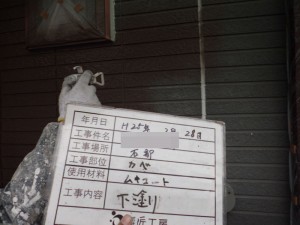 年月日 H25年 2月 28日
工事件名
工事場所 石部
工事部位 カベ
使用材料 ムキコート
工事内容 下塗り
近工房